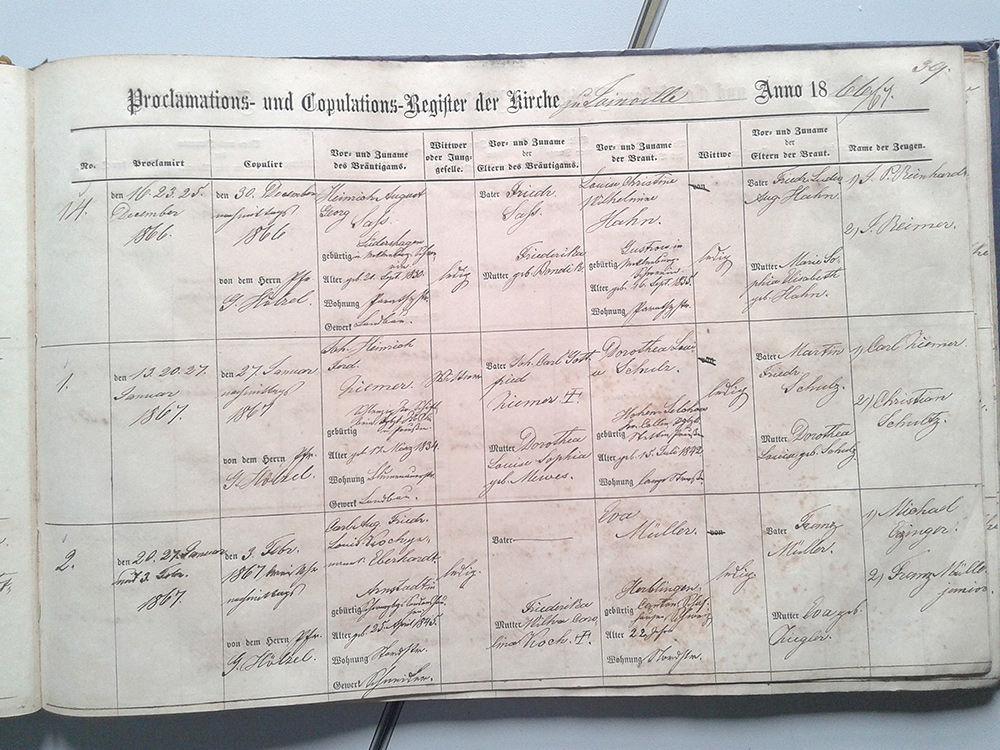 39.
Proclamations- und Copulations-Register der Kirche zu Joinville Anno 1866/67.
No. Proclamirt Copulirt Vor- und Zuname des Bräutigams. Wittwer oder Junggeselle. Vor- und Zuname der Eltern des Bräutigams. Vor- und Zuname der Braut. Wittwe Vor- und Zuname der Eltern der Braut. Name der Zeugen.
14.
den 16. 23. 25.
December
1866.
den 30. December
nachmittags
1866
von dem Herrn Pfr.
G. Hölzel.
Heinrich August
Georg
Sass.
gebürtig
Alter geb. Sept. 1830.
Wohnung
Gewerk Landbau.
ledig
Vater Friedr.
Sass.
Friederika
Mutter geb.
Louise Christine
Wilhelmine
Hahn.
Güstrow in
gebürtig Mecklenburg-
Schwerin
Alter geb. 16. Sept. 1835.
Wohnung
von
ledig
Vater Friedr.
Aug. Hahn.
Mutter Marie So-
phia Elisabeth
geb. Hahn.
1) J. P. Reinhardt
2) J. Reimer.
1.
den 13. 20. 27.
Januar
1867.
den 27 Januar
nachmittags
1867
von dem Herrn Pfr.
G. Hölzel.
Joh. Heinrich
Ferd.
Ziemer.
gebürtig
Alter geb. 17. März 1834.
Wohnung
Gewerk Landbau.
Wittwer
Vater Joh. Carl Gott-
fried
Ziemer ✝.
Mutter Dorothea
Louise Sophia
geb. Mewes.
Dorothea Loui-
se Schulz.
gebürtig
Alter geb. 15. Juli 1842
Wohnung lange Strasse
von
ledig
Vater Martin
Friedr.
Schulz.
Mutter Dorothea
Louisa geb. Schulz.
1) Carl Ziemer
2) Christian
Schultz.
2.
den 20. 27. Januar
und 3. Febr.
1867.
den 3. Febr.
1867
nachmittags
von dem Herrn Pfr.
G. Hölzel.
Carl Aug. Friedr.
Louis Koch
Eberhardt.
Arnstadt in
gebürtig
Alter geb. 25. April 1845.
Wohnung Nordstr.
Gewerk Schneider.
ledig.
Vater
Friederika
Mutter Wilha. Caro-
lina Koch. ✝.
Eva
Müller.
gebürtig Canton Schaf-
hausen, Schweiz
Alter 22 Jahr
Wohnung Nordstr.
von
ledig.
Vater Franz
Müller.
Mutter Eva geb.
Ziegler.
1) Michael
2) Franz Müller
junior.